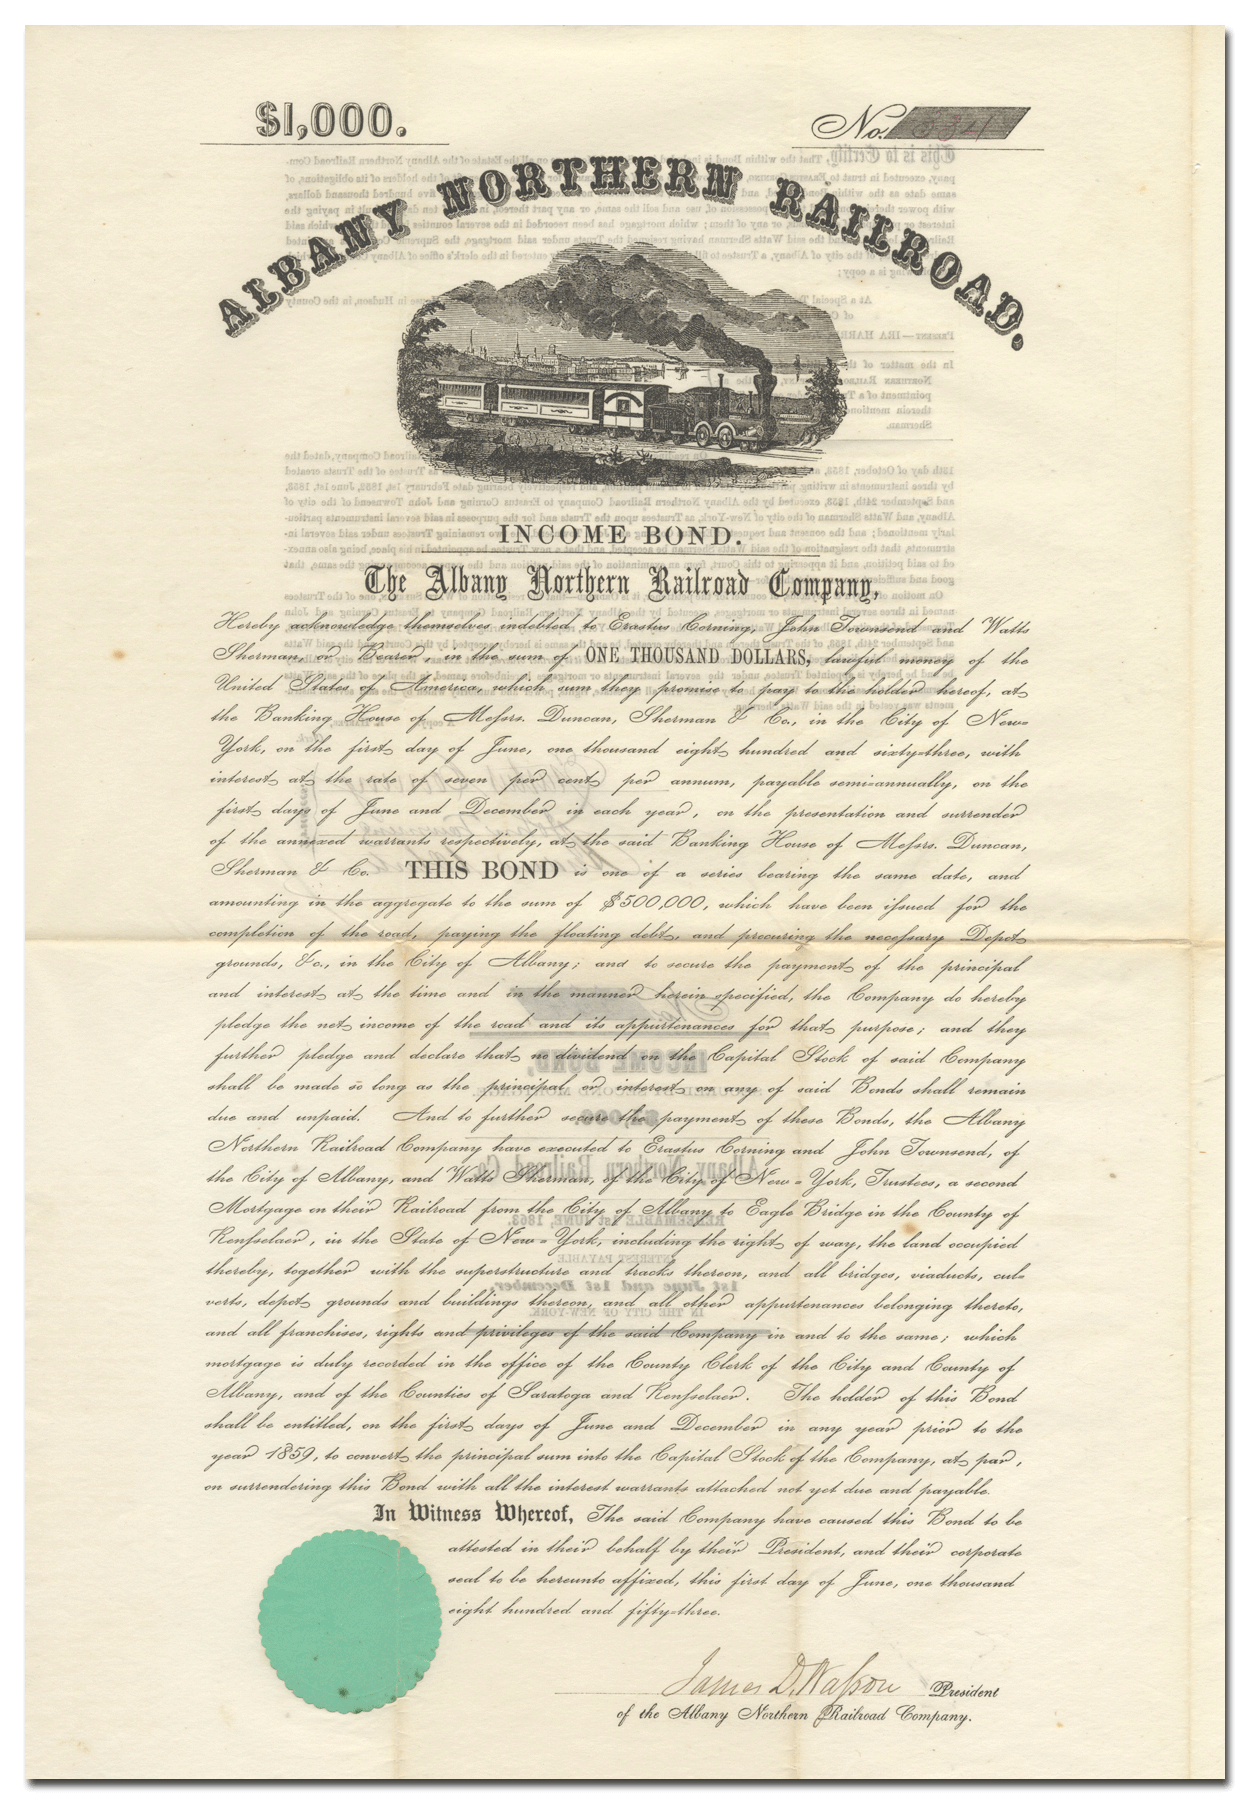 $1,000.
No. 534
ALBANY NORTHERN RAILROAD.
INCOME BOND.
The Albany Northern Railroad Company,
Hereby acknowledge themselves indebted to Erastus Corning, John Townsend and Watts
Sherman, or Bearer, in the sum of ONE THOUSAND DOLLARS, lawful money of the
United States of America, which sum they promise to pay to the holder hereof, at
the Banking House of Messrs. Duncan, Sherman & Co., in the City of New-
York, on the first day of June, one thousand eight hundred and sixty-three, with
interest at the rate of seven per cent per annum, payable semi-annually, on the
first days of June and December in each year, on the presentation and surrender
of the annexed warrants respectively, at the said Banking House of Messrs. Duncan,
Sherman & Co. THIS BOND is one of a series bearing the same date, and
amounting in the aggregate to the sum of $500,000, which have been issued for the
completion of the road, paying the floating debt, and procuring the necessary Depot
grounds, &c., in the City of Albany; and to secure the payment of the principal
and interest at the time and in the manner herein specified, the Company do hereby
pledge the net income of the road and its appurtenances for that purpose; and they
further pledge and declare that no dividend on the Capital Stock of said Company
shall be made so long as the principal or interest on any of said Bonds shall remain
due and unpaid. And to further secure the payment of these Bonds, the Albany
Northern Railroad Company have executed to Erastus Corning and John Townsend, of
the City of Albany, and Watts Sherman, of the City of New-York, Trustees, a second
Mortgage on their Railroad from the City of Albany to Eagle Bridge in the County of
Rensselaer, in the State of New-York, including the right of way, the land occupied
thereby, together with the superstructure and tracks thereon, and all bridges, viaducts, cul-
verts, depot grounds and buildings thereon, and all other appurtenances belonging thereto,
and all franchises, rights and privileges of the said Company in and to the same; which
mortgage is duly recorded in the office of the County Clerk of the City and County of
Albany, and of the Counties of Saratoga and Rensselaer. The holder of this Bond
shall be entitled, on the first days of June and December in any year prior to the
year 1859, to convert the principal sum into the Capital Stock of the Company, at par,
on surrendering this Bond with all the interest warrants attached not yet due and payable.
In Witness Whereof, The said Company have caused this Bond to be
attested in their behalf by their President, and their corporate
seal to be hereunto affixed, this first day of June, one thousand
eight hundred and fifty-three.
James D. Wasson President
of the Albany Northern Railroad Company.